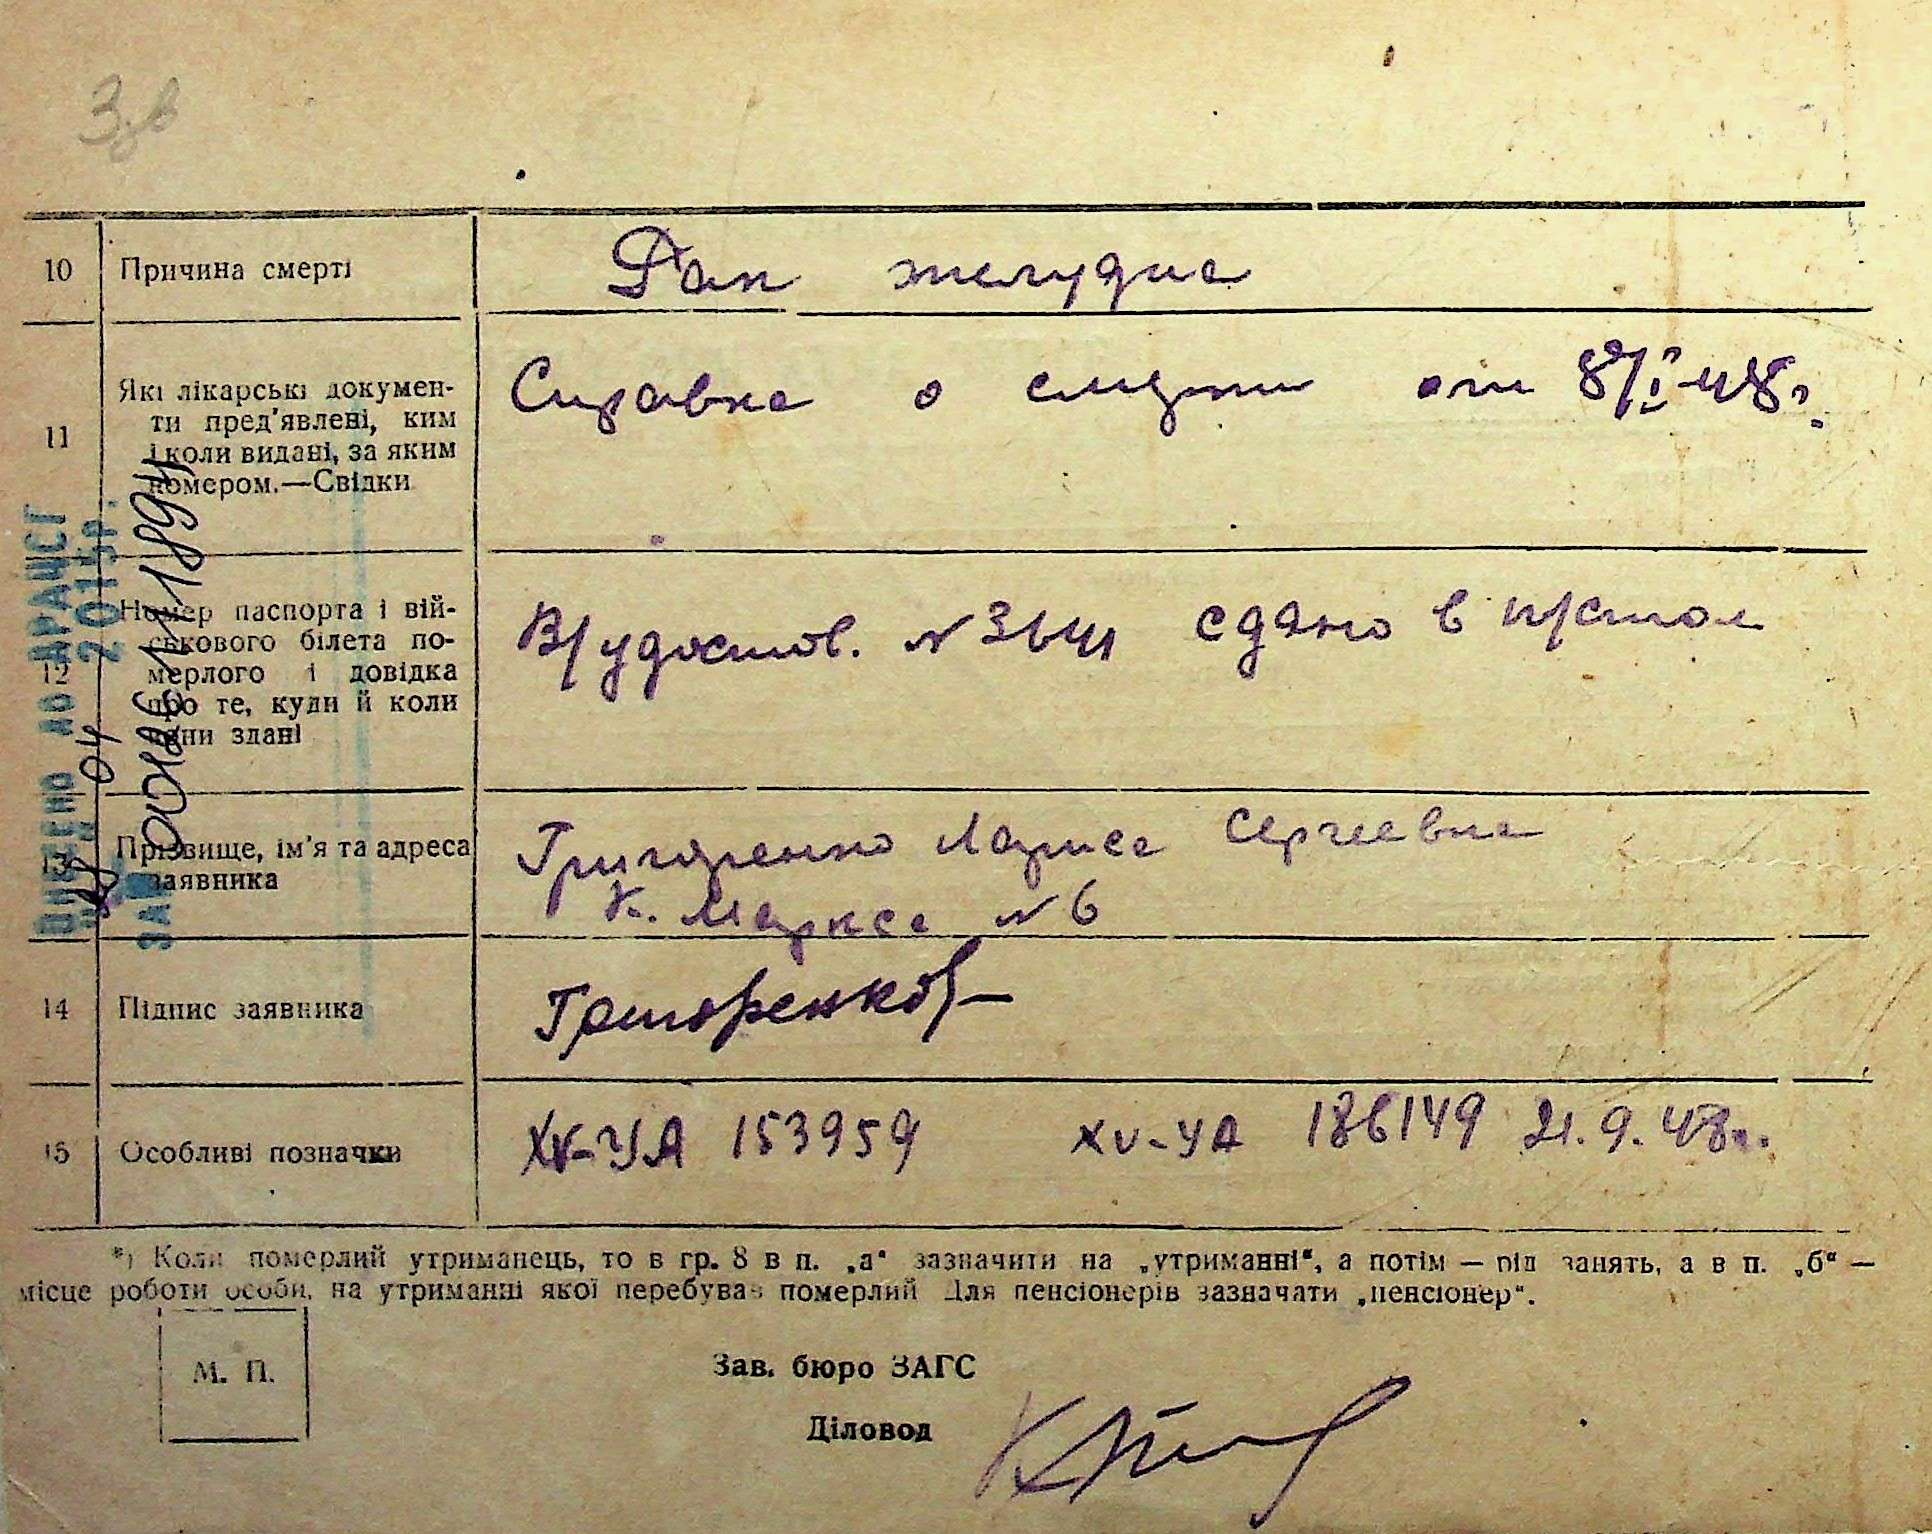 З.в
10 Причина смерті Рак желудка
11 Які лікарські докумен-
ти пред'явлені, ким
і коли видані, за яким
номером.—Свідки
Справка о смерти от 8/I-48г.
12 Номер паспорта і вій-
ськового білета по-
мерлого і довідка
про те, куди й коли
вони здані
В/удостов. N сдано в п/стол
13 Прізвище, ім'я та адреса
заявника
Григоренко Лариса Сергеевна
К. Маркса N 6
14 Підпис заявника Григоренко
15 Особливі позначки XV-УА 153959 XV-УА 186149 21.9.48г.
ДО ДРАЦСГ
04 2015р.
ЗА 00026711894
*) Коли померлий утриманець, то в гр. 8 в п. „а“ зазначити на „утриманні“, а потім — рід занять, а в п. „б“ —
місце роботи особи, на утриманні якої перебував померлий Для пенсіонерів зазначати „пенсіонер“.
М. П.
Зав. бюро ЗАГС
Діловод